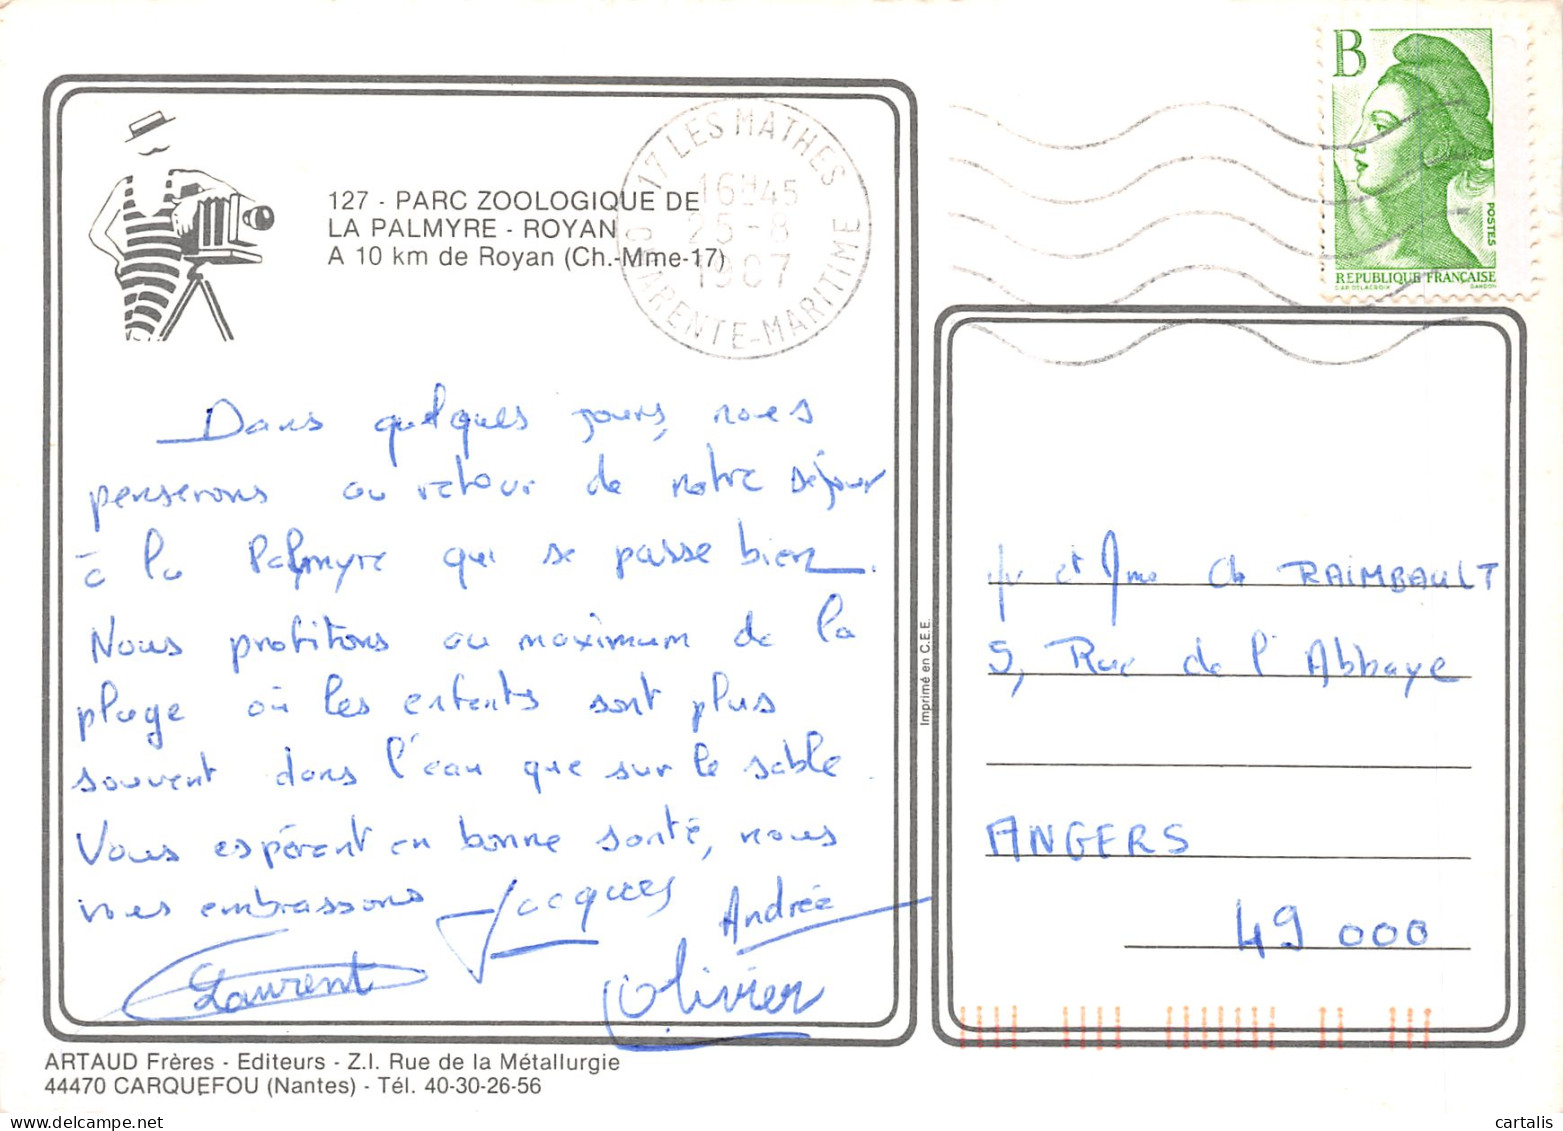 127 - PARC ZOOLOGIQUE DE
LA PALMYRE - ROYAN
A 10 km de Royan (Ch.-Mme-17)
17 LES MATHES
16H45
25-8
1987
CHARENTE-MARITIME
B
POSTES
REPUBLIQUE FRANÇAISE
D'AP. DELACROIX GANDON
Dans quelques jours, nous
penserons au retour de notre séjour
à la Palmyre qui se passe bien.
Nous profitons au maximum de la
plage où les enfants sont plus
souvent dans l'eau que sur le sable.
Vous espérant en bonne santé, nous
vous embrassons Jacques
Andrée
Laurent Olivier
Imprimé en C.E.E.
Mr et Mme Ch RAIMBAULT
5, Rue de l'Abbaye
ANGERS
49 000
ARTAUD Frères - Editeurs - Z.I. Rue de la Métallurgie
44470 CARQUEFOU (Nantes) - Tél. 40-30-26-56
cartalis